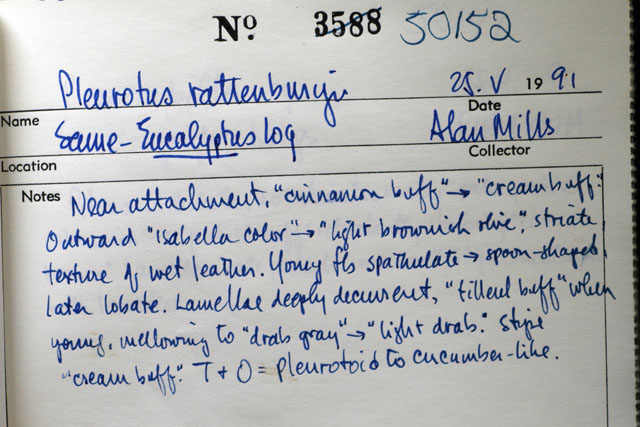 Nº 3588 50152
Pleurotus rattenburyi 25. V 1991
Name Date
Same - Eucalyptus log Alan Mills
Location Collector
Notes Near attachment, "cinnamon buff" → "cream buff".
Outward "Isabella color" → "light brownish olive", striate,
texture of wet leather. Young fbs spathulate → spoon-shaped,
later lobate. Lamellae deeply decurrent, "tilleul buff" when
young, mellowing to "drab gray" → "light drab." Stipe
"cream buff". T + O = Pleurotoid to cucumber-like.